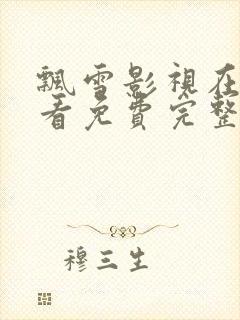 飄雪影視在
看免費完整
穆三生